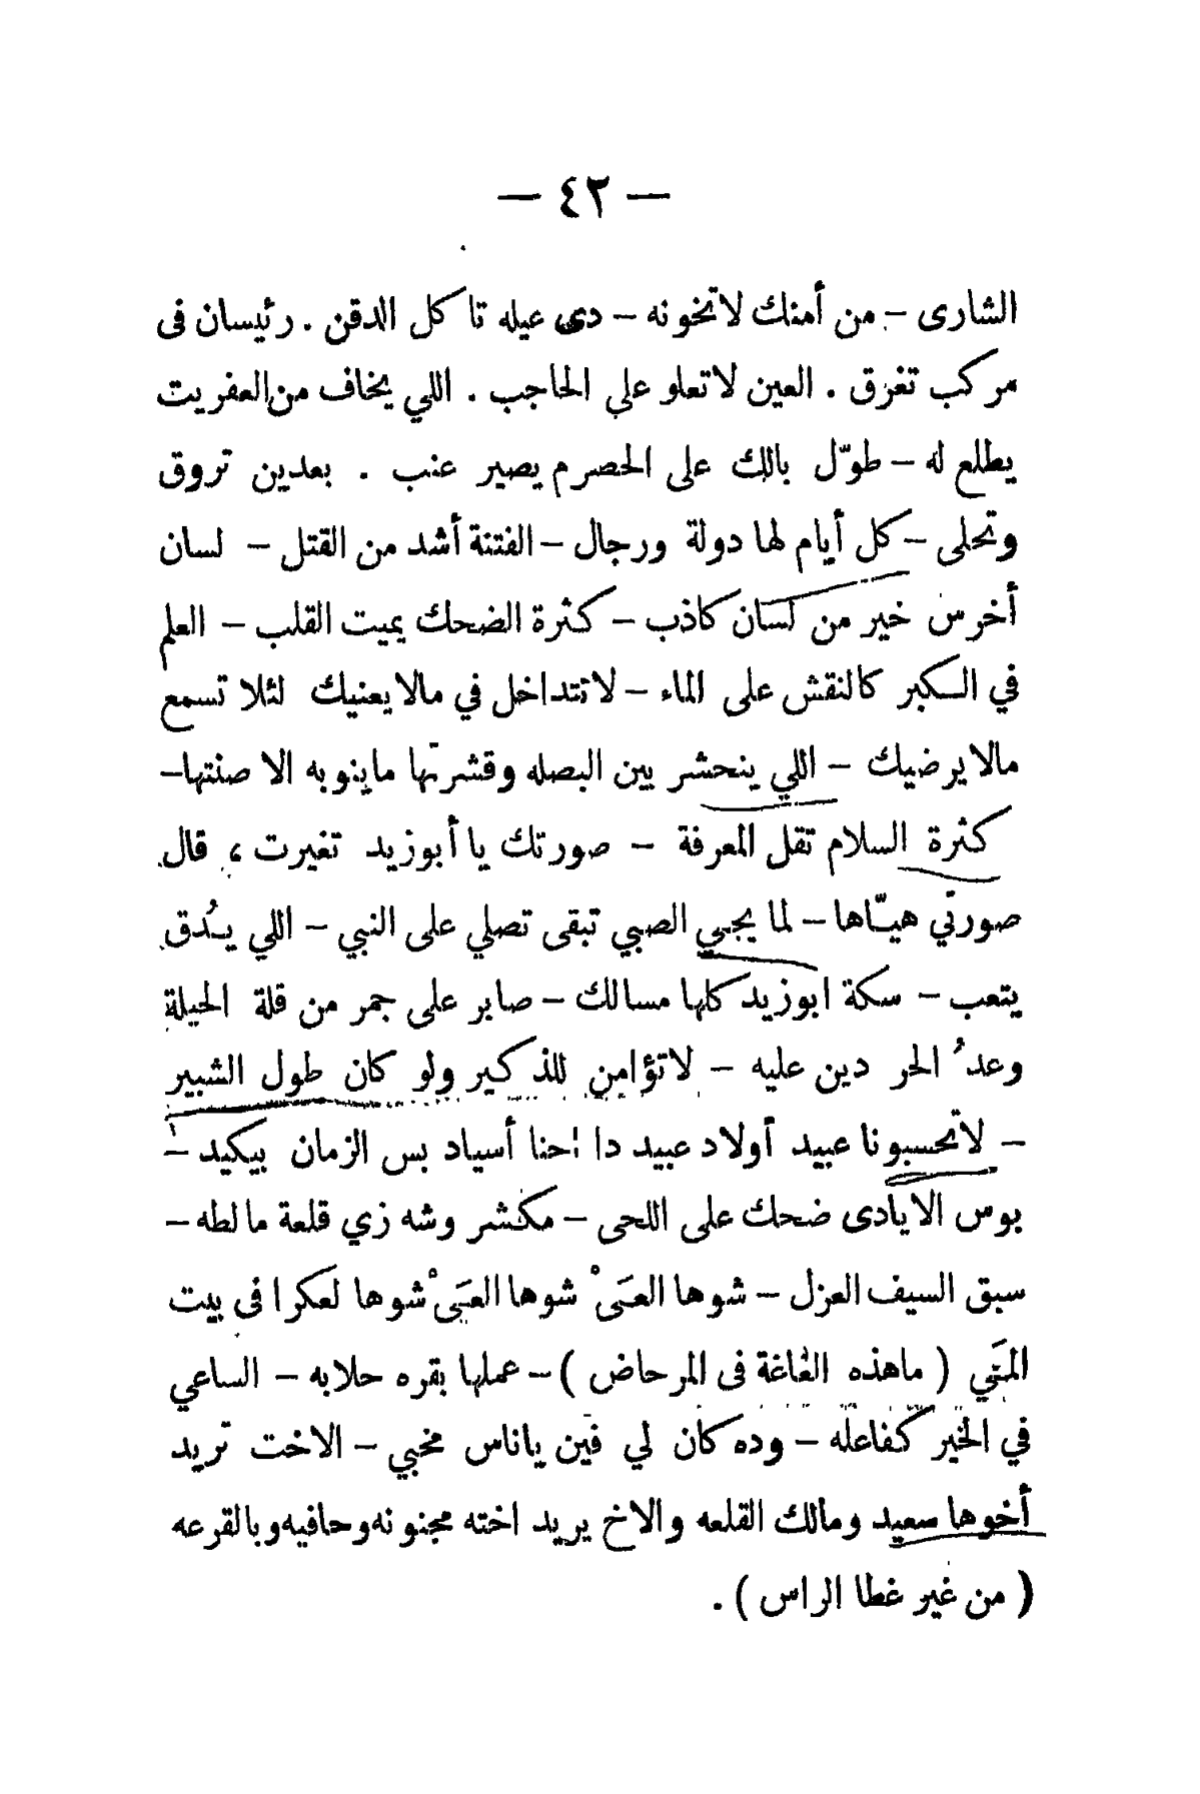 — ٤٢ —
الشارى – من أمنك لاتخونه – دى عيله تاكل الدقن . رئيسان فى
مركب تغرق . العين لاتعلو على الحاجب . اللي يخاف من العفريت
يطلع له – طوّل بالك على الحصرم يصير عنب . بعدين تروق
وتحلى – كل أيام لها دولة ورجال – الفتنة أشد من القتل – لسان
أخرس خير من لسان كاذب – كثرة الضحك يميت القلب – العلم
في الكبر كالنقش على الماء – لاتتداخل في مالايعنيك لئلا تسمع
مالايرضيك – اللي ينحشر بين البصله وقشرتها ماينوبه الا صنتها–
كثرة السلام تقل المعرفة – صورتك يا أبوزيد تغيرت ، قال
صورتي هيّاها – لما يجي الصبي تبقى تصلي على النبي – اللي يدُق
يتعب – سكة ابوزيد كلها مسالك – صابر على جمر من قلة الحيلة
وعدُ الحر دين عليه – لاتؤامن للذكير ولو كان طول الشبير
– لاتحسبونا عبيد أولاد عبيد دا احنا أسياد بس الزمان بيكيد –
بوس الايادى ضحك على اللحى – مكشر وشه زي قلعة مالطه –
سبق السيف العزل – شوها العَىْ شوها العَيَىْ شوها لعكرا فى بيت
المَتَي ( ماهذه الغاغة فى المرحاض ) – عملها بقره حلابه – الساعي
في الخير كفاعله – وده كان لي فين ياناس مخبي – الاخت تريد
أخوها سعيد ومالك القلعه والاخ يريد اخته مجنونه وحافيه وبالقرعه
( من غير غطا الراس ) .